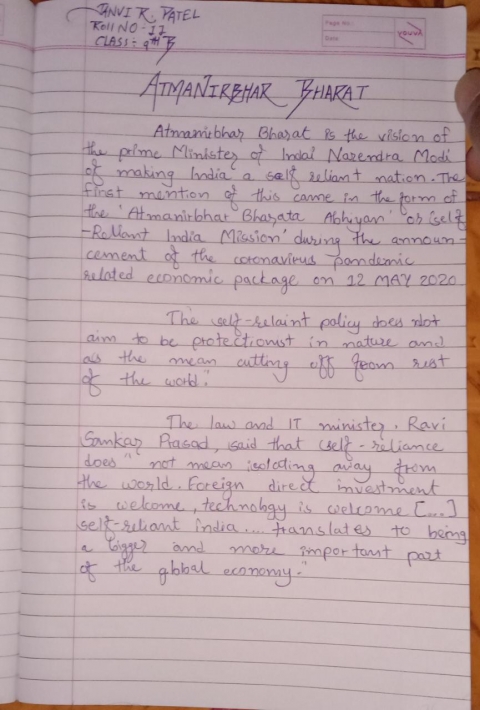 JANVI R. PATEL
Roll NO:- 17
CLASS:- 9th B
Page No.:
Date
YOUVA
ATMANIRBHAR BHARAT
Atmanirbhar Bharat is the vision of
the prime Minister of Indai Narendra Modi
of making India a self reliant nation. The
first mention of this came in the form of
the 'Atmanirbhar Bharata Abhiyan' or 'self
-Reliant India Mission' during the announ-
cement of the coronavirus pandemic
related economic package on 12 MAY 2020
The self-relaint policy does Not
aim to be protectionist in nature and
as the mean cutting off from rest
of the world."
The law and IT minister. Ravi
Sankar Prasad, said that self-reliance
does "not mean isolating away from
the world. Foreign direct investment
is welcome, technology is welcome [...]
self-reliant india.... translates to being
a bigger and more important part
of the global economy."